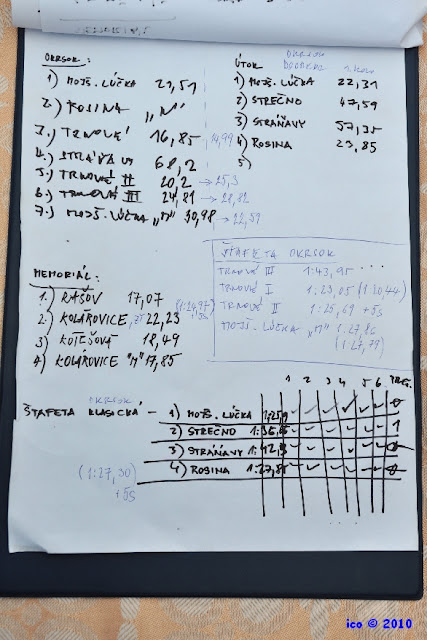 OKRSOK:
1) MOJŠ. LÚČKA 27,51
2.) ROSINA "N"
3.) TRNOVÉ 16,85 14,99
4.) STRÁŇAVY 68,2
5.) TRNOVÉ II 20,2 → 25,3
6.) TRNOVÉ III 24,81 → 28,82
7.) MOJŠ. LÚČKA "M" 30,98 → 22,59
ÚTOK OKRSOK
1) MOJŠ. LÚČKA 22,31
2) STREČNO 47,59
3) STRÁŇAVY 57,35
4) ROSINA 23,85
5)
MEMORIÁL:
1.) RAŠOV 17,07
2.) KOLÁROVICE 22,23
3) KOTEŠOVÁ 18,49
4) KOLÁROVICE "M" 17,85
(1:24,97)
+5s
ŠTAFETA OKRSOK
TRNOVÉ III 1:43,95 ...
TRNOVÉ I 1:23,05 (1:20,44)
TRNOVÉ II 1:25,69 +5s
MOJŠ. LÚČKA "M" 1:27,86
(1:27,79)
OKRSOK
ŠTAFETA KLASICKÁ -
1 2 3 4 5 6
1) MOJŠ. LÚČKA
2) STREČNO
3) STRÁŇAVY
4) ROSINA
(1:27,30)
+5s
ico © 2010